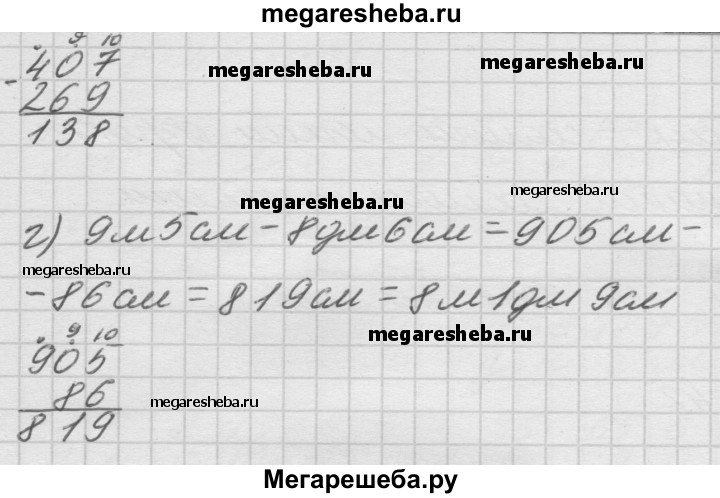 megaresheba.ru
9 10
- 407
269
138
megaresheba.ru
megaresheba.ru
megaresheba.ru
megaresheba.ru
г) 9м5см - 8дм6см = 905см -
megaresheba.ru
- 86см = 819см = 8м1дм9см
9 10
905
86
819
megaresheba.ru
megaresheba.ru
Мегарешеба.ру